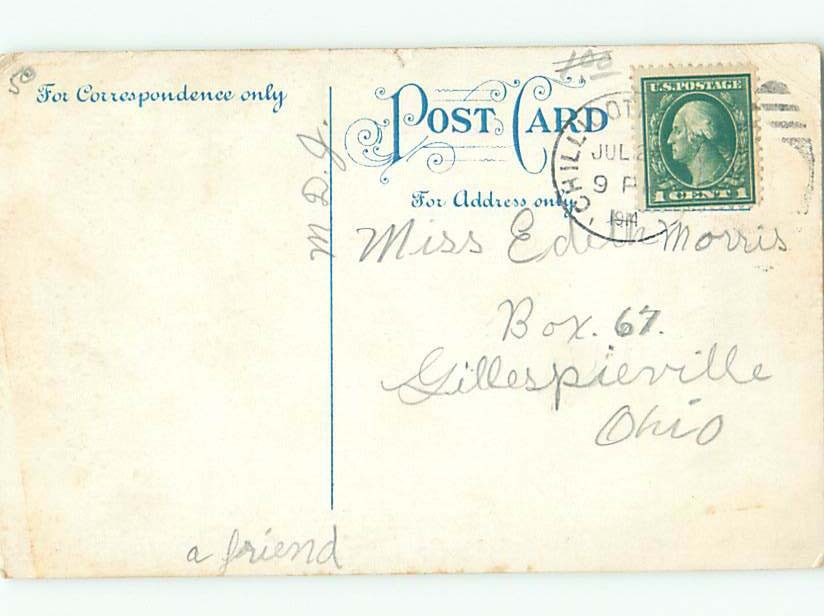 50
100
For Correspondence only
POST CARD
U.S. POSTAGE
1 CENT 1
CHILLICOT
JUL 2
9 P
For Address only
M. D. J.
Miss Edith Morris
Box. 67.
Gillespieville
Ohio
a friend